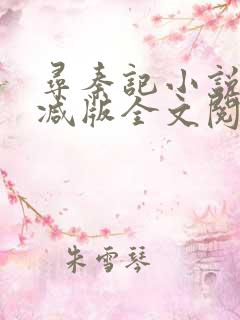 尋秦記小說
减版全文閱
朱雪琴